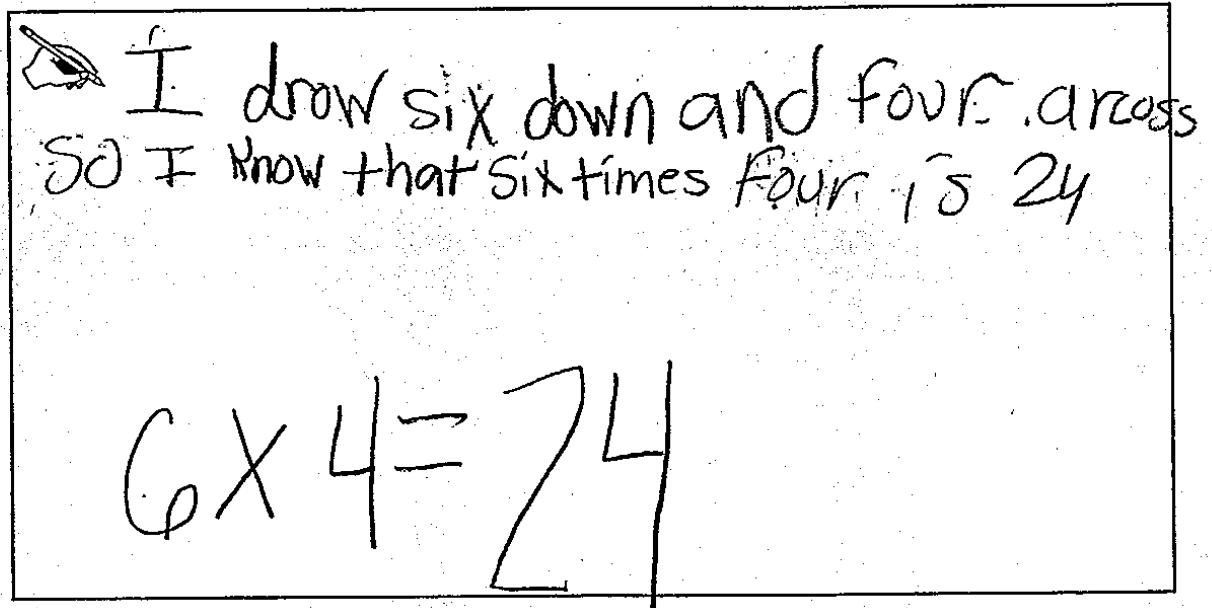 I drow six down and four arcoss
So I know that six times four is 24
6 x 4 = 24